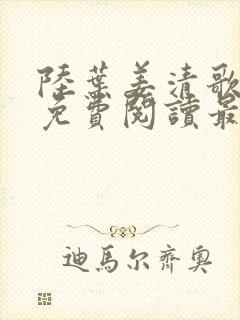 陸葉姜清歌
免費閱讀最
迪馬尔齊奧